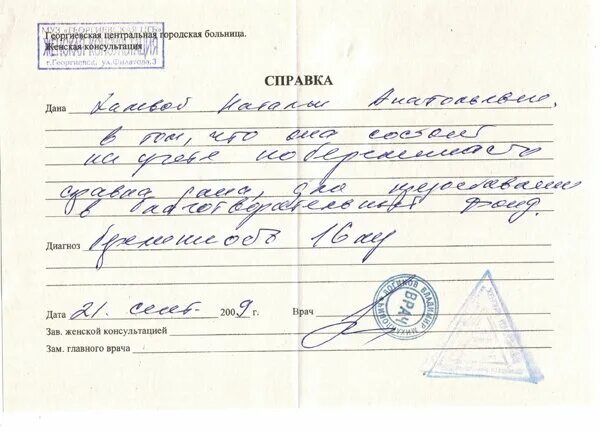 Георгиевская центральная городская больница.
Женская консультация
МУЗ «ГЕОРГИЕВСКАЯ ЦГБ»
ЖЕНСКАЯ КОНСУЛЬТАЦИЯ
г.Георгиевск, ул.Филатова,3
СПРАВКА
Дана Наталье Анатольевне
в том, что она состоит
на учете по беременности
справка дана, для предоставления
в благотворительный фонд.
Диагноз Беременность 16 нед
Дата 21. сент. 2009 г. Врач
ЛОГИКОВ ВЛАДИМИР МИХАЙЛОВИЧ
ВРАЧ
Зав. женской консультацией
Зам. главного врача